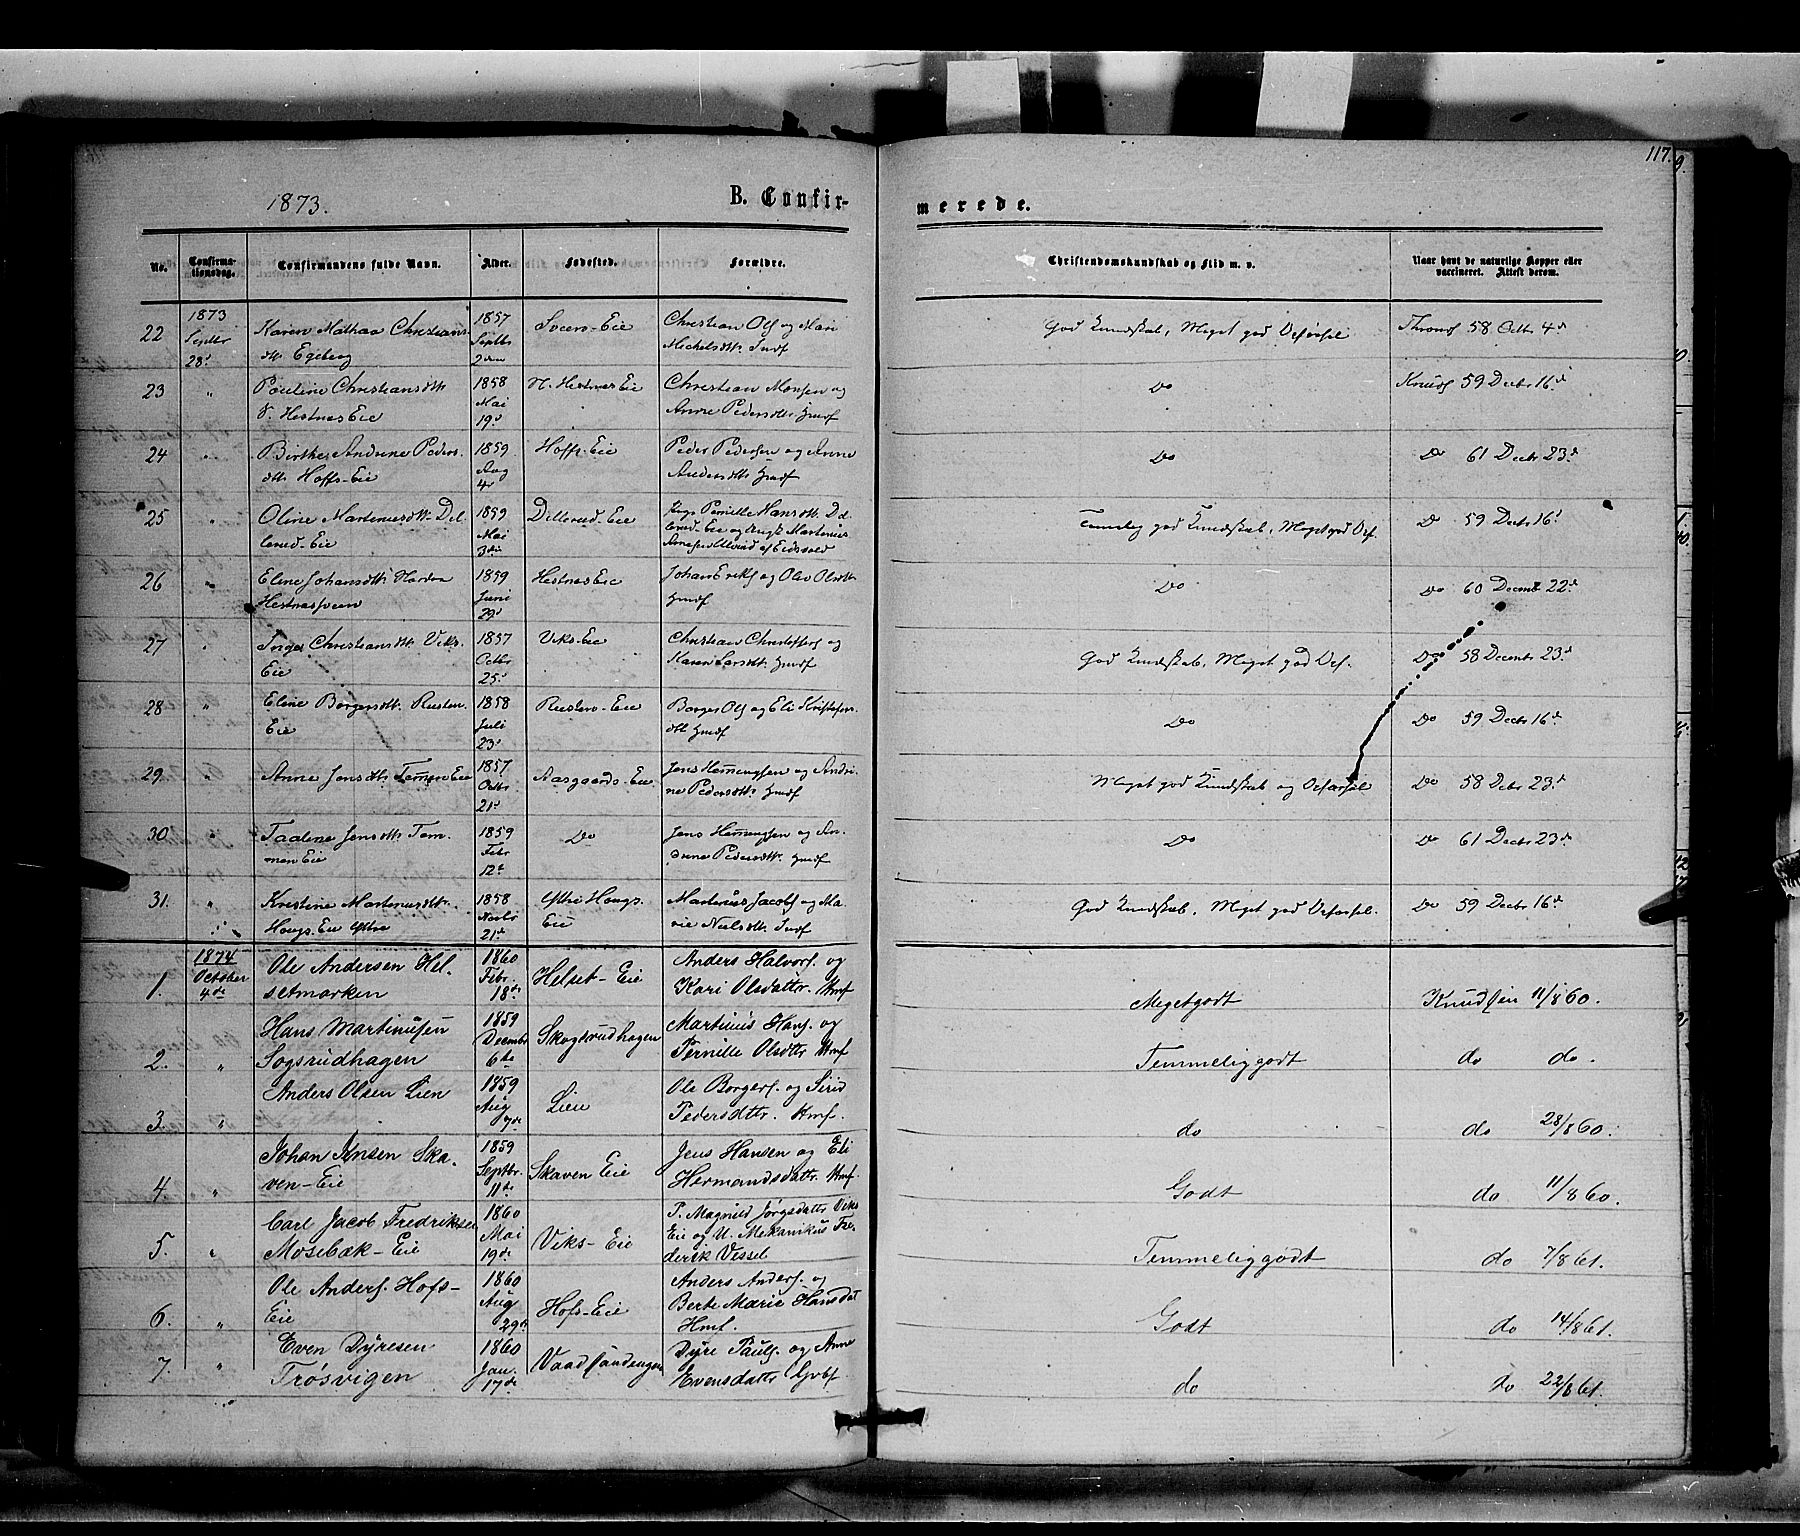 117.
1873.
B. Confirmerede.
No. Confirmationsdag. Confirmandens fulde Navn. Alder. Fødested. Forældre. Christendomskundskab og Flid m. v. Naar havt de naturlige Kopper eller vaccineret. Attest derom.
22 1873 Septbr 28d Karen Mathea Christiansdtr Egeberg 1857 Septbr 2den Eie Christian Ols og Mari Mickelsdtr Indf God Kundskab, Meget god Opførsel Throns 58 Octb 4d
23 " Pauline Christiansdtr N. Hestnæs Eie 1858 Mai 19d N. Hestnæs Eie Christian Monsen og Anne Pedersdtr Hmdf Do Knuds 59 Decbr 16d
24 " Birthe Andrine Pedersdtr Hoffs-Eie 1859 Aug 4d Hoffs-Eie Peder Pedersen og Anne Andersdtr Hmdf Do Do 61 Decbr 23d
25 " Oline Martinusdtr Dellerud-Eie 1859 Mai 3die Dellerud-Eie Pige Pernille Hansdtr Dellerud-Eie og Ungk Martinius af Eidsvold Temmelig god Kundskab, Meget god Opf. Do 59 Decbr 16d
26 " Eline Johansdtr Hestnæsveen 1859 Juni 29d Hestnæs Eie Johan Eriks og Olea Olsdtr Hmdf Do Do 60 Decmbr 22d
27 " Inger Christiansdtr Viks-Eie 1857 Octbr 25d Viks-Eie Christian Christoffers og Karen Larsdtr Hmdf God Kundskab, Meget god Opf. Do 58 Decembr 23d
28 " Eline Borgersdtr Rusten Eie 1858 Juli 23d Rusten-Eie Borger Ols og Eli Kristofersdtr Hmdf Do Do 59 Decbr 16d
29. " Anne Jensdtr Temmen Eie 1857 Octbr 21d Aasgaards-Eie Jens Hemmingsen og Andrine Pedersdtr Hmdf Meget god Kundskab og Opførsel Do 58 Debr 23d
30. " Taaline Jensdtr Temmen Eie 1859 Febr 12t Do Jens Hemmingsen og Andrine Pedersdtr. Hmdf Do Do 61 Decbr 23d
31. " Kristine Martinusdtr. Hougs-Eie Østre 1858 Novbr 21d Østre Hougs-Eie Martinus Jacobs og Marie Nielsdtr Indf God Kundskab, Meget god Opførsel. Do 59 Decbr 16d
1. 1874 October 4de Ole Andersen Helsetmarken 1860 Febr. 18de Helset-Eie Anders Halvors. og Kari Olsdattr. Hmf Megetgodt Knudsen 11/8 60.
2. " Hans Martinussen Sogsrudhagen 1859 Decembr 6te Skogsrudhagen Martinus Hans. og Pernille Olsdttr Hmf Temmeliggodt do do.
3. " Anders Olsen Lien 1859 Aug 7de Lien Ole Borgers. og Sirid Pedersdttr. Hmf. do do 28/8 60.
4 " Johan Jensen Skaven-Eie 1859 Septbr. 11te Skaven Eie Jens Hansen og Eli Hermandsdattr. Hmf. Godt do 11/8 60.
5. " Carl Jacob Fredriksen Mosebæk-Eie 1860 Mai 19de Viks-Eie P. Magnild Jørgsdattr Viks Eie og U. Mekanikus Frederik Vessel Temmeliggodt do 7/8 61.
6. " Ole Anders. Hofs-Eie 1860 Aug 29de Hofs-Eie Anders Anders. og Berte Marie Hansdat Hmf. Godt do 14/8 61.
7. " Even Dyresen Trøsvigen 1860 Jan. 17de Dyre Pauls. og Anne Evensdattr Gbf. do do 22/8 61.